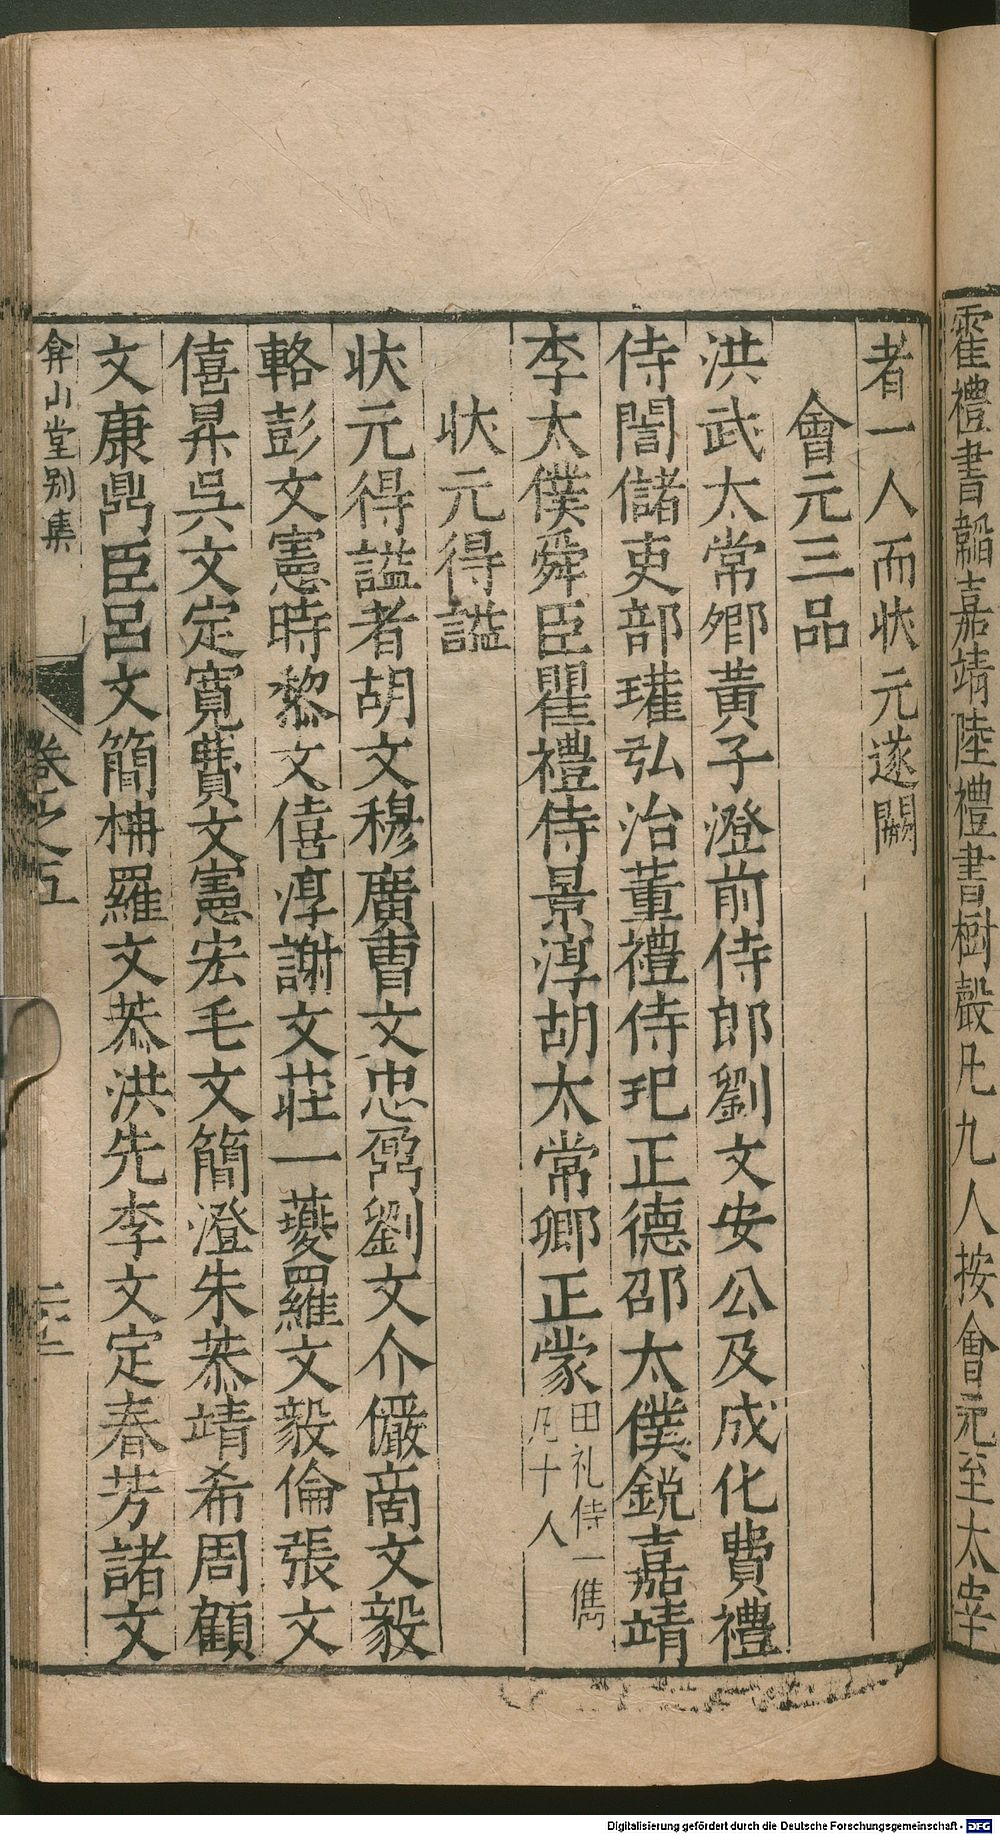 霍禮書韜嘉靖陸禮書樹聲凡九人按會元至太宰
者一人而狀元遂闕
會元三品
洪武太常卿黃子澄前侍郎劉文安公及成化費禮
侍誾儲吏部瓘弘治董禮侍玘正德邵太僕銳嘉靖
李太僕舜臣瞿禮侍景淳胡太常卿正蒙田礼侍一儁凡十人
狀元得謚
狀元得謚者胡文穆廣曹文忠鼐劉文介儼商文毅
輅彭文憲時黎文僖淳謝文莊一夔羅文毅倫張文
僖昇吳文定寬費文憲宏毛文簡澄朱恭靖希周顧
文康鼎臣呂文簡柟羅文恭洪先李文定春芳諸文
弇山堂别集
卷之五
Digitalisierung gefördert durch die Deutsche Forschungsgemeinschaft - DFG